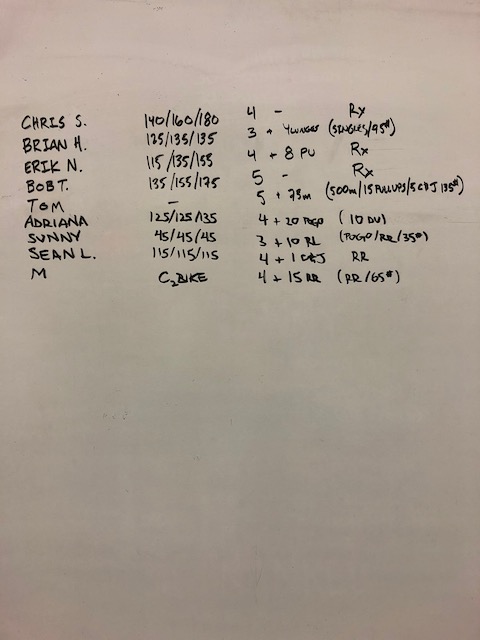 CHRIS S. 140/160/180 4 - Rx
BRIAN H. 125/135/135 3 + 4 LUNGES (SINGLES/95#)
ERIK N. 115/135/155 4 + 8 PU Rx
BOB T. 135/155/175 5 - Rx
TOM - 5 + 75m (500m/15 PULLUPS/5 C&J 135#)
ADRIANA 125/125/135 4 + 20 POGO (10 DU)
SUNNY 45/45/45 3 + 10 RL (POGO/RR/35#)
SEAN L. 115/115/115 4 + 1 C&J RR
M C2 BIKE 4 + 15 RR (RR/65#)